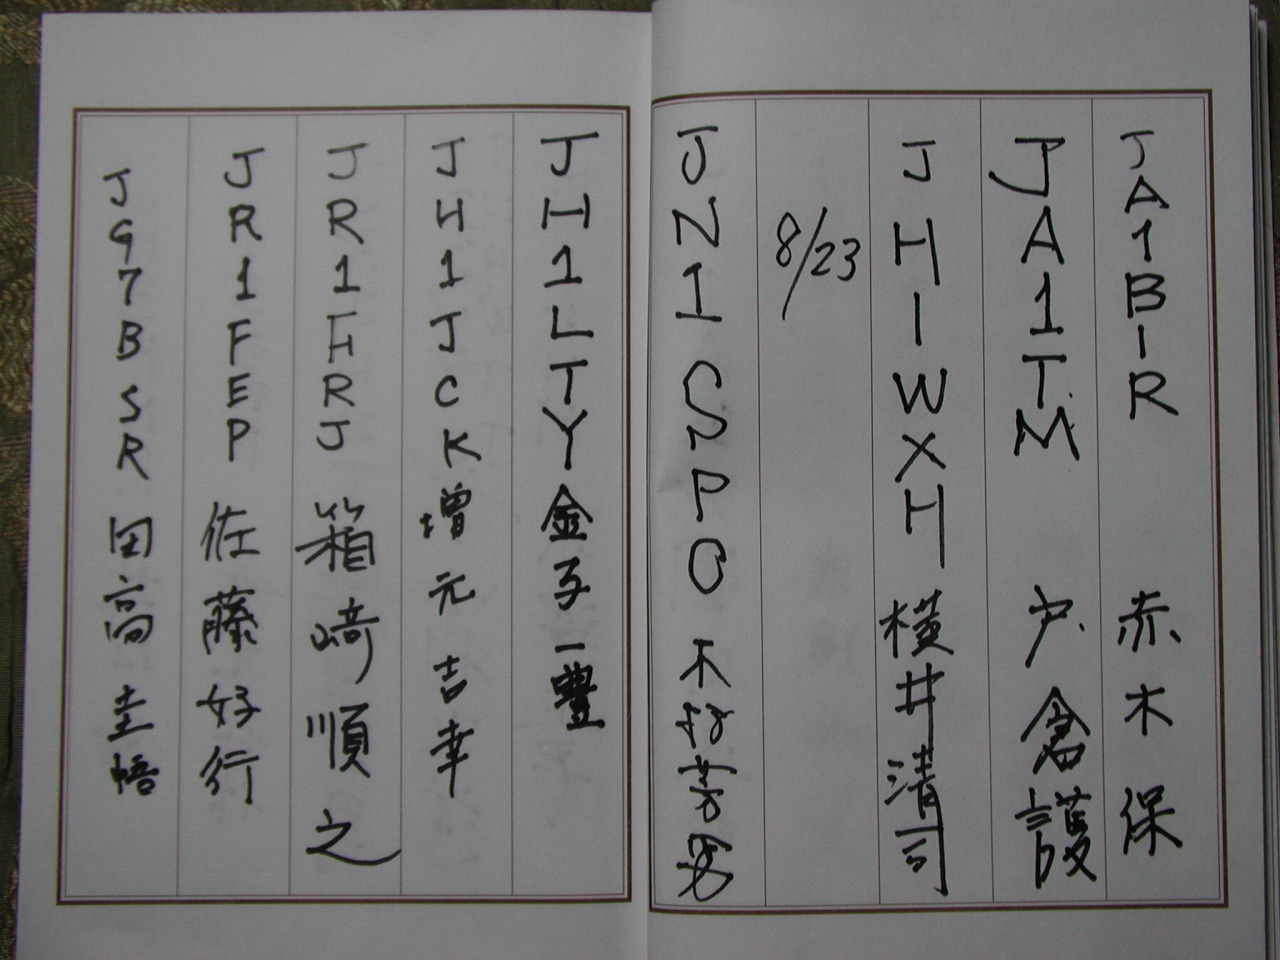 JA1BIR 赤木保
JA1TM 戸倉護
JH1WXH 横井清司
8/23
JN1SPO
JH1LTY 金子一豊
JH1JCK 増元吉幸
箱崎順之
JR1FEP 佐藤好行
JG7BSR 田高圭悟